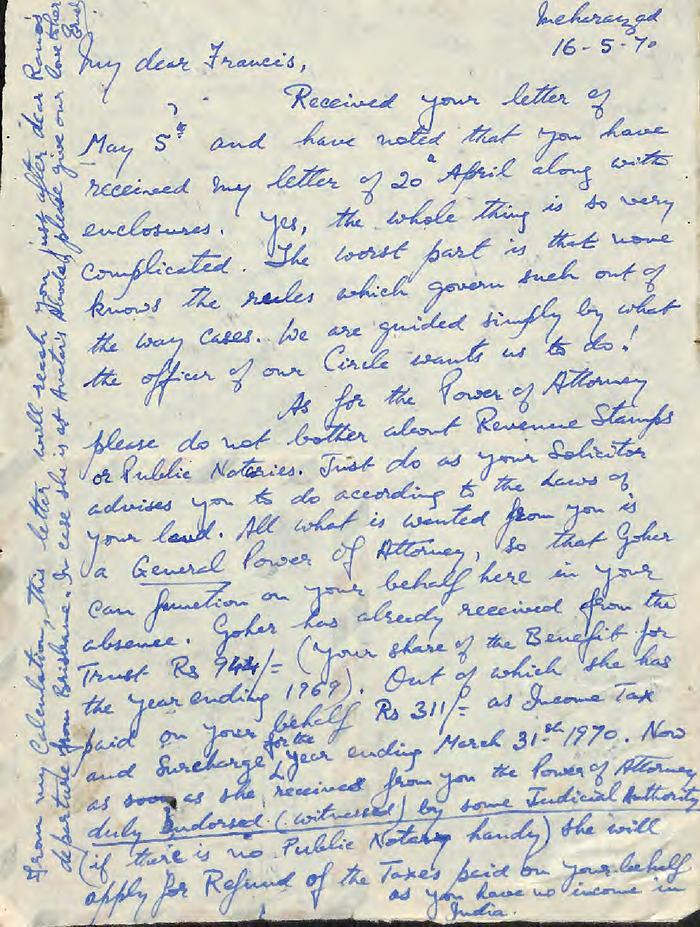 Meherazad
16-5-70
My dear Francis,
Received your letter of
May 5th and have noted that you have
received my letter of 20th April along with
enclosures. Yes, the whole thing is so very
complicated. The worst part is that none
knows the rules which govern such out of
the way cases. We are guided simply by what
the officer of our Circle wants us to do!
As for the Power of Attorney
please do not bother about Revenue Stamps
or Public Notaries. Just do as your Solicitor
advises you to do according to the Laws of
your land. All what is wanted from you is
a General Power of Attorney, so that Goher
can function on your behalf here in your
absence. Goher has already received from the
Trust Rs 944/= (your share of the Benefit for
the year ending 1969). Out of which she has
paid on your behalf Rs 311/= as Income Tax
and Surcharge for the year ending March 31st 1970. Now
as soon as she received from you the Power of Attorney
duly Endorsed (witnessed) by some Judicial Authority
(if there is no Public Notary handy) she will
apply for Refund of the Taxes paid on your behalf
as you have no income in
India.
From my calculation, this letter will reach you just after dear
departure from Brisbane. In case she is at Avatar's Abode, please give our love to her